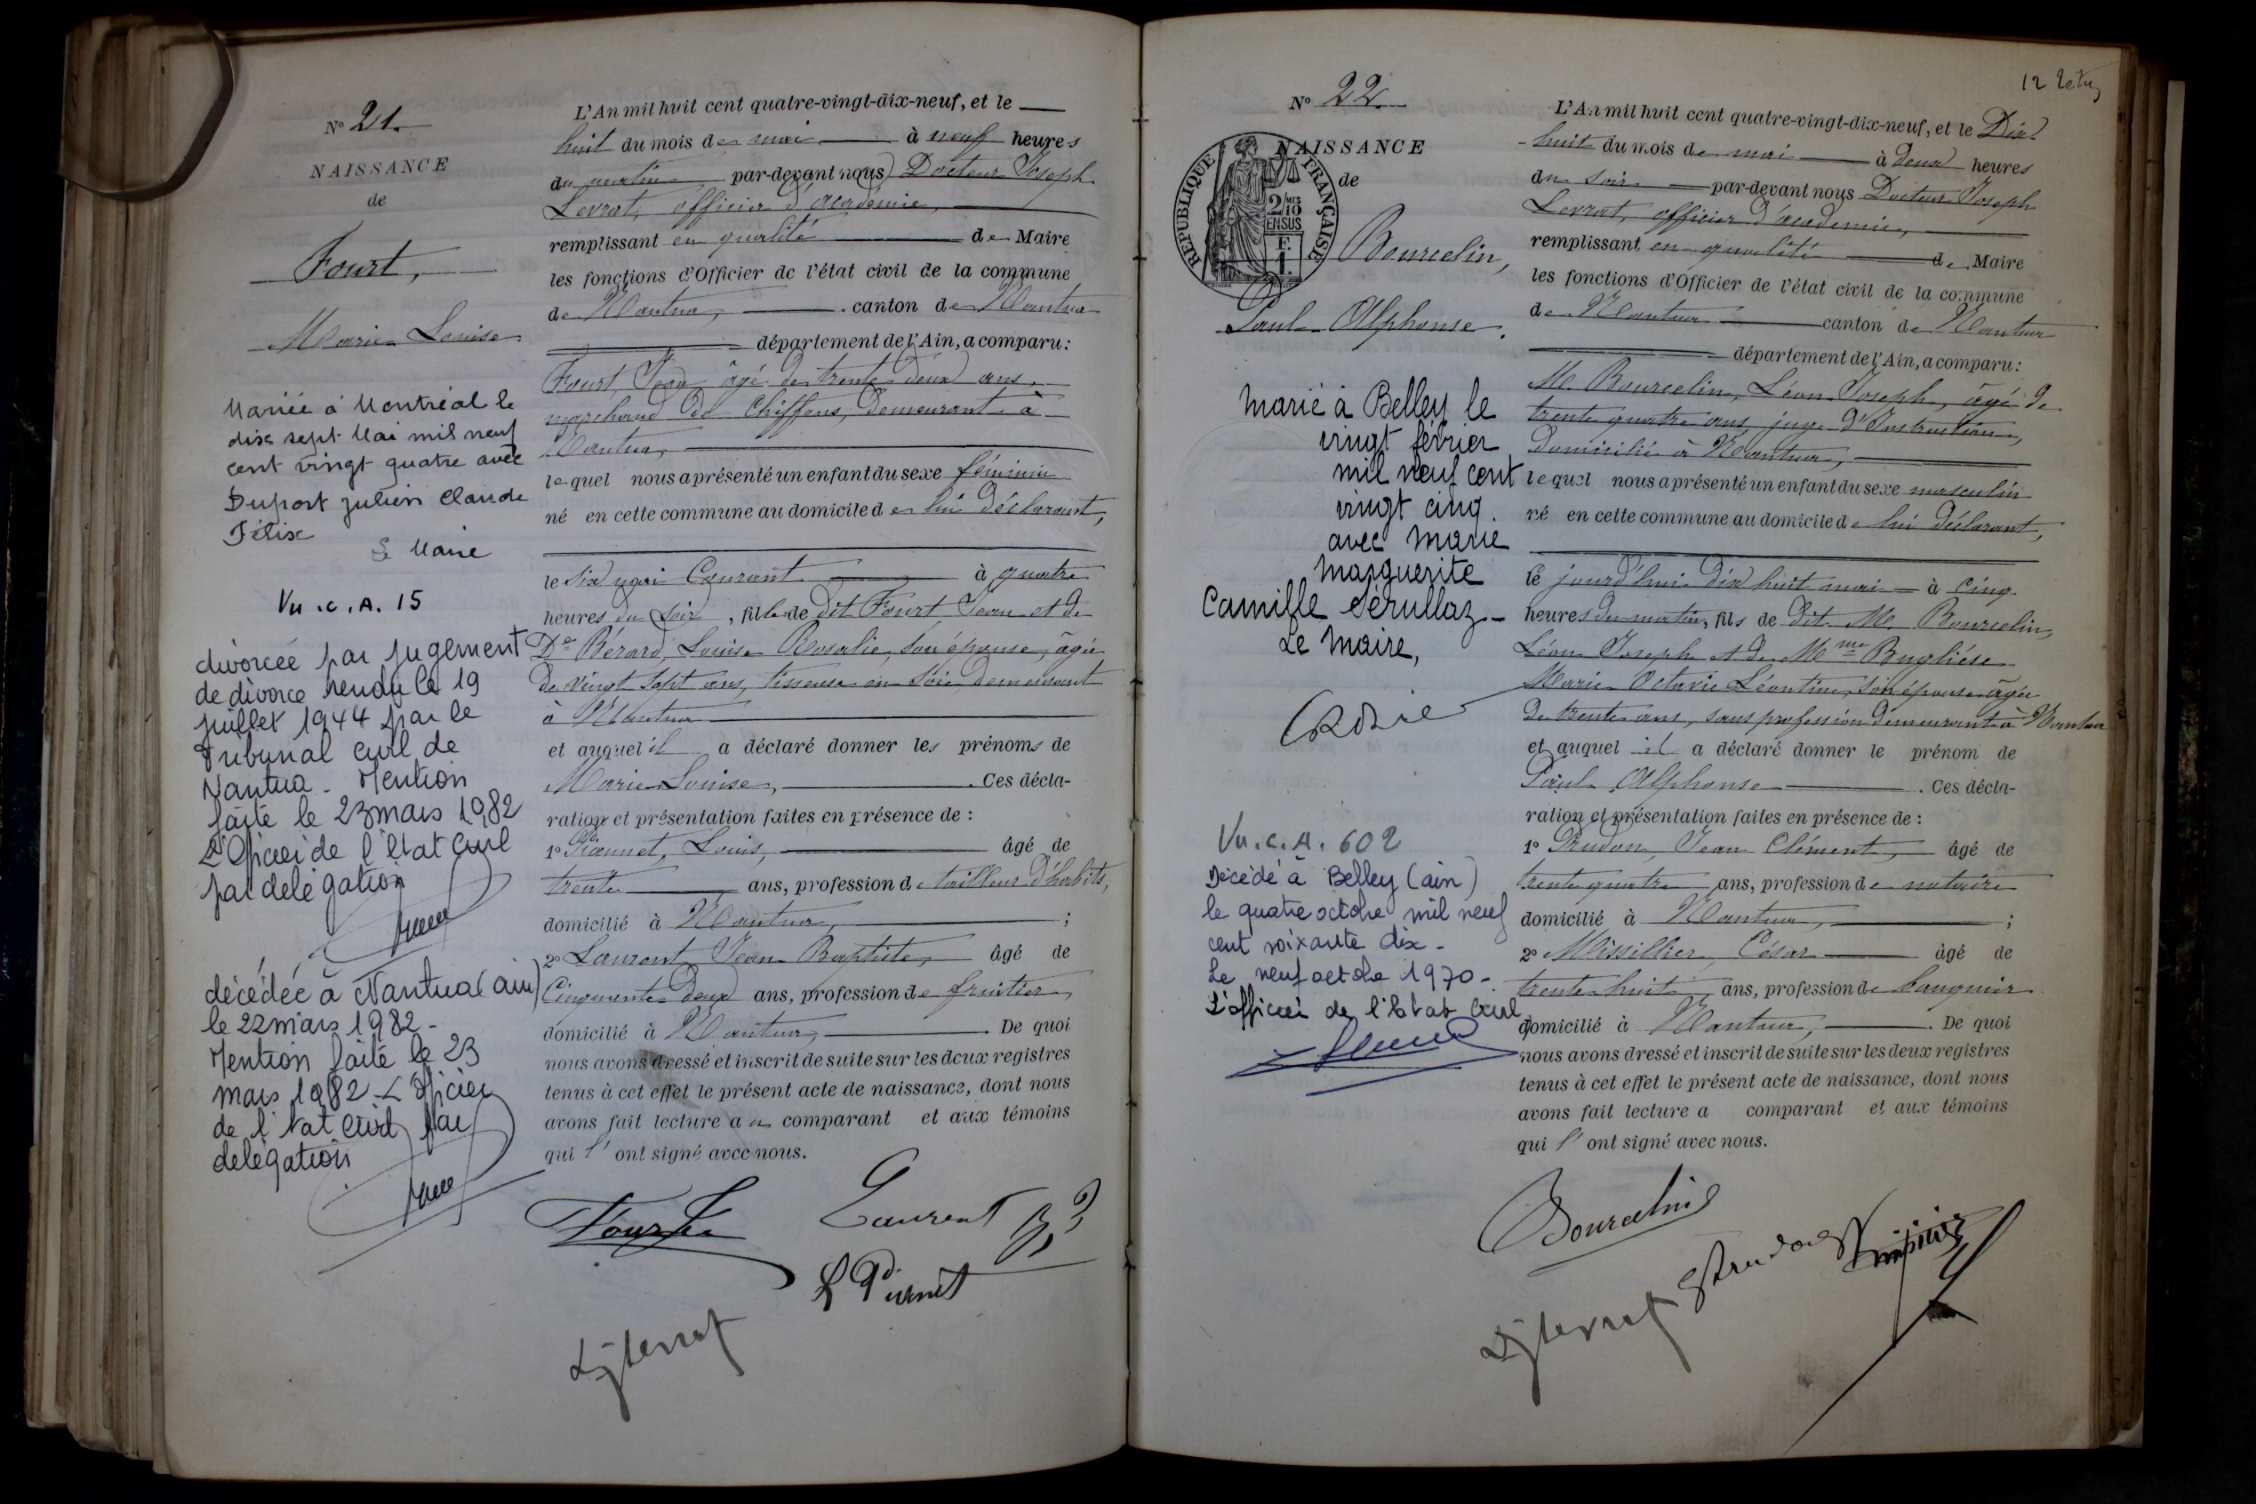 N° 21.
NAISSANCE
de
Fourt,
Marie Louise
Mariée à Montréal le
dix sept Mai mil neuf
cent vingt quatre avec
Duport Julien Claude
Félix
Le Maire
Vu.C.A. 15
divorcée par jugement
de divorce rendu le 19
juillet 1944 par le
Tribunal Civil de
Nantua - Mention
faite le 23 mars 1982
L'Officier de l'état Civil
par délégation
décédée à Nantua (ain)
le 22 mars 1982 -
Mention faite le 23
mars 1982 - L'Officier
de l'état civil par
délégation
L'An mil huit cent quatre-vingt-dix-neuf, et le
huit du mois de mai à neuf heures
du matin par-devant nous Docteur Joseph
Levrat, officier d'académie,
remplissant en qualité de Maire
les fonctions d'Officier de l'état civil de la commune
de Nantua, canton de Nantua
département de l'Ain, a comparu:
Fourt, Jean, âgé de trente deux ans,
marchand de chiffons, demeurant à
Nantua,
lequel nous a présenté un enfant du sexe féminin
né en cette commune au domicile de lui déclarant,
le six mai Courant à quatre
heures du soir, fille de dit Fourt, Jean et de
De Bérard, Louise Rosalie, son épouse, âgée
de vingt sept ans, tisseuse en soie, demeurant
à Nantua
et auquel il a déclaré donner les prénoms de
Marie Louise, . Ces décla-
ration et présentation faites en présence de :
1° Louis, âgé de
trente ans, profession de tailleur d'habits,
domicilié à Nantua, ;
2° Laurent, Jean Baptiste, âgé de
Cinquante deux ans, profession de fruitier,
domicilié à Nantua, . De quoi
nous avons dressé et inscrit de suite sur les deux registres
tenus à cet effet le présent acte de naissance, dont nous
avons fait lecture au comparant et aux témoins
qui l'ont signé avec nous.
Laurent
12 
N° 22.
NAISSANCE
de
REPUBLIQUE FRANÇAISE
2/10
EN SUS
F.
1.
Bourcelin,
Paul Alphonse.
Marié à Belley le
vingt février
mil neuf cent
vingt cinq.
avec Marie
Marguerite
Camille Sérullaz -
Le Maire,
Vu.C.A. 602
Décédé à Belley (ain)
le quatre octobre mil neuf
cent soixante dix -
Le neuf octobre 1970 -
L'officier de l'Etat Civil,
L'An mil huit cent quatre-vingt-dix-neuf, et le Dix-
huit du mois de mai à deux heures
du soir par-devant nous Docteur Joseph
Levrat, officier d'académie,
remplissant en qualité de Maire
les fonctions d'Officier de l'état civil de la commune
de Nantua canton de Nantua
département de l'Ain, a comparu:
M. Bourcelin, Léon Joseph, âgé de
trente quatre ans, juge d'Instruction,
domicilié à Nantua,
lequel nous a présenté un enfant du sexe masculin
né en cette commune au domicile de lui déclarant,
le jourd'hui dix huit mai à cinq
heures du matin, fils de dit M. Bourcelin,
Léon Joseph et de Mme Bugliése
Marie Octavie Léontine, son épouse, âgée
de trente ans, sans profession demeurant à Nantua
et auquel il a déclaré donner le prénom de
Paul Alphonse . Ces décla-
ration et présentation faites en présence de :
1° Prudon, Jean Clément, âgé de
trente quatre ans, profession de notaire
domicilié à Nantua, ;
2° Missillier, César âgé de
trente huit ans, profession de banquier
domicilié à Nantua, . De quoi
nous avons dressé et inscrit de suite sur les deux registres
tenus à cet effet le présent acte de naissance, dont nous
avons fait lecture a comparant et aux témoins
qui l'ont signé avec nous.
Bourcelin